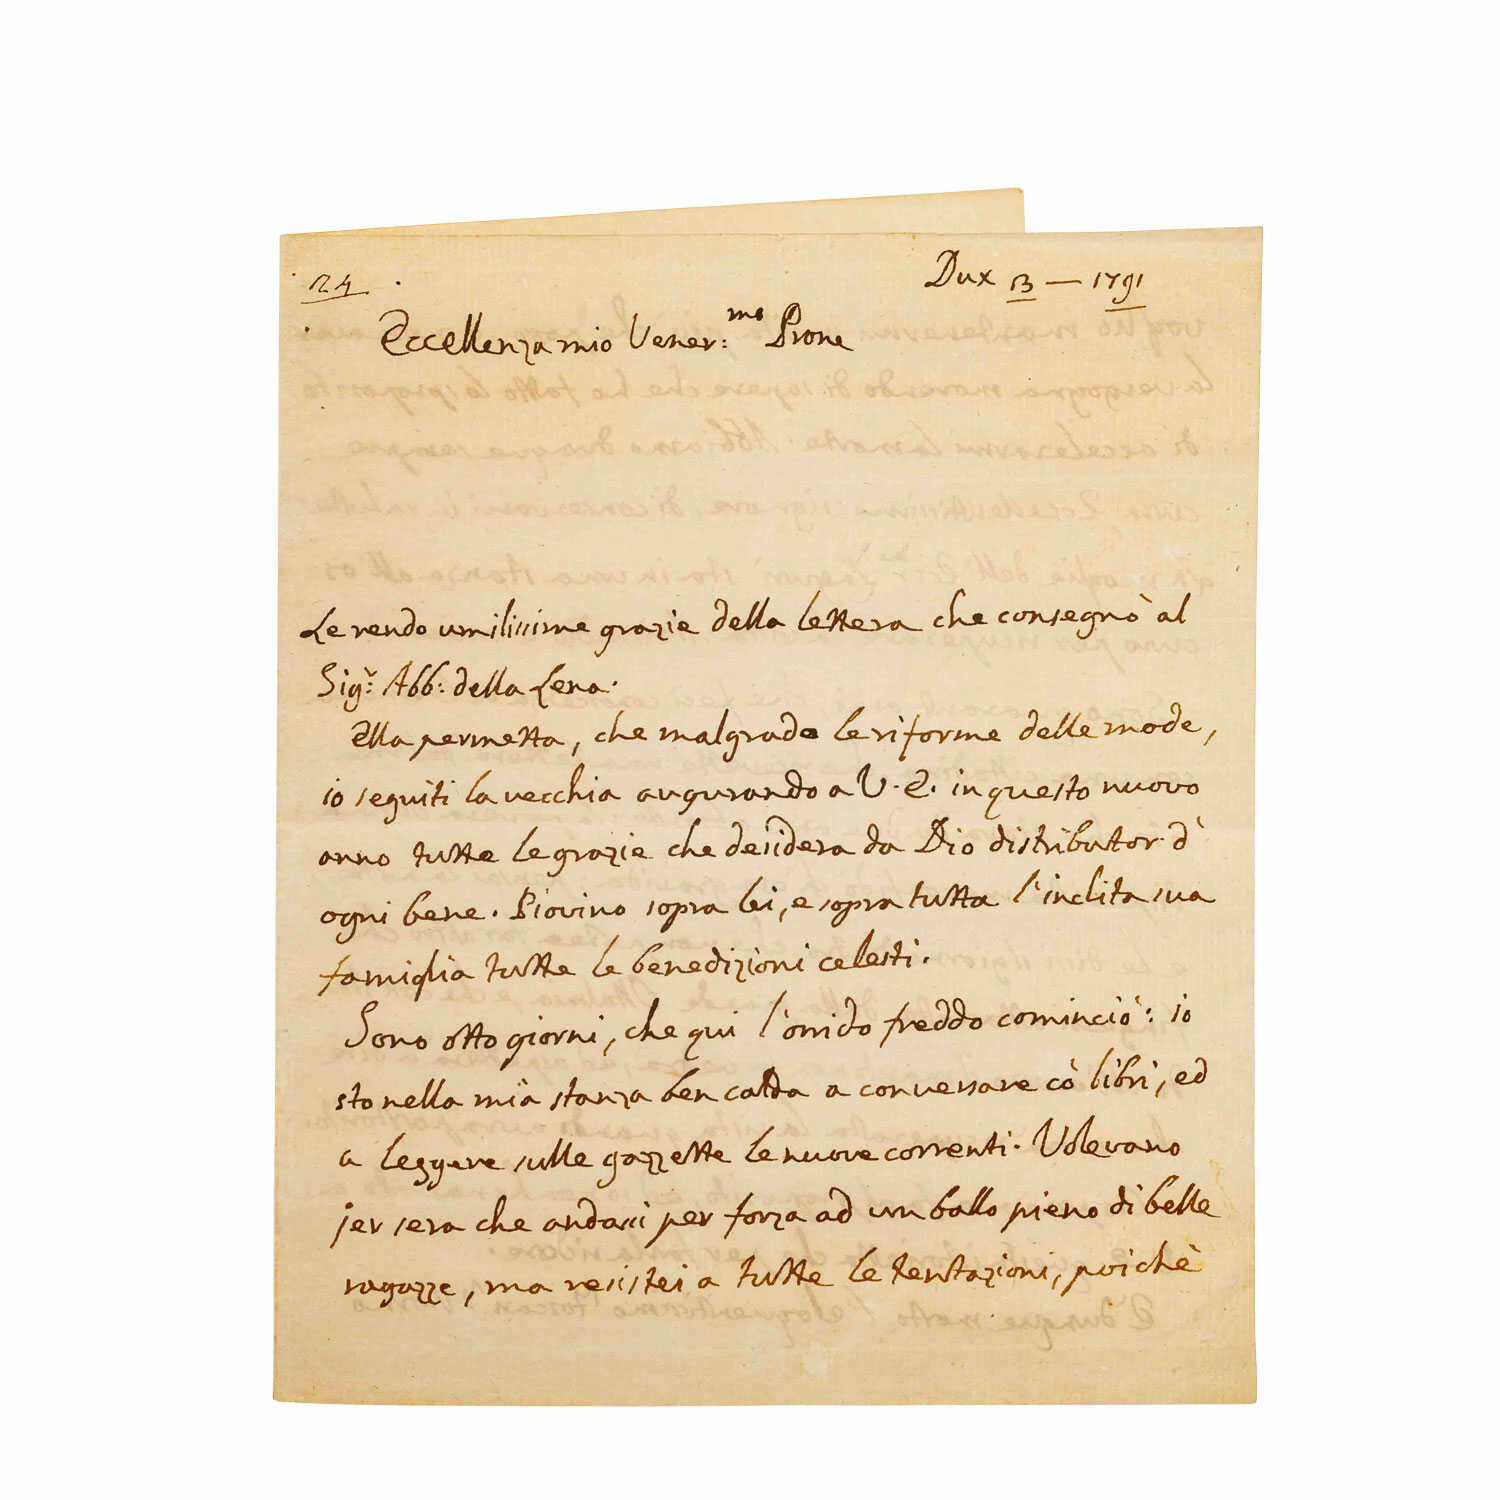 24
Dux 13 — 1791
Eccellenza mio Vener:mo Prone
Le rendo umilissime grazie della lettera che consegnò al
Sigr: Abb: della Lena.
Ella permetta, che malgrado le riforme delle mode,
io seguiti la vecchia augurando a V. E. in questo nuovo
anno tutte le grazie che desidera da Dio distributor d'
ogni bene. Piovino sopra lei, e sopra tutta l'inclita sua
famiglia tutte le benedizioni celesti.
Sono otto giorni, che qui l'orrido freddo cominciò: io
sto nella mia stanza ben calda a conversare co' libri, ed
a leggere sulle gazzette le nuove correnti. Volevano
jer sera che andassi per forza ad un ballo pieno di belle
ragazze, ma resistei a tutte le tentazioni, poichè